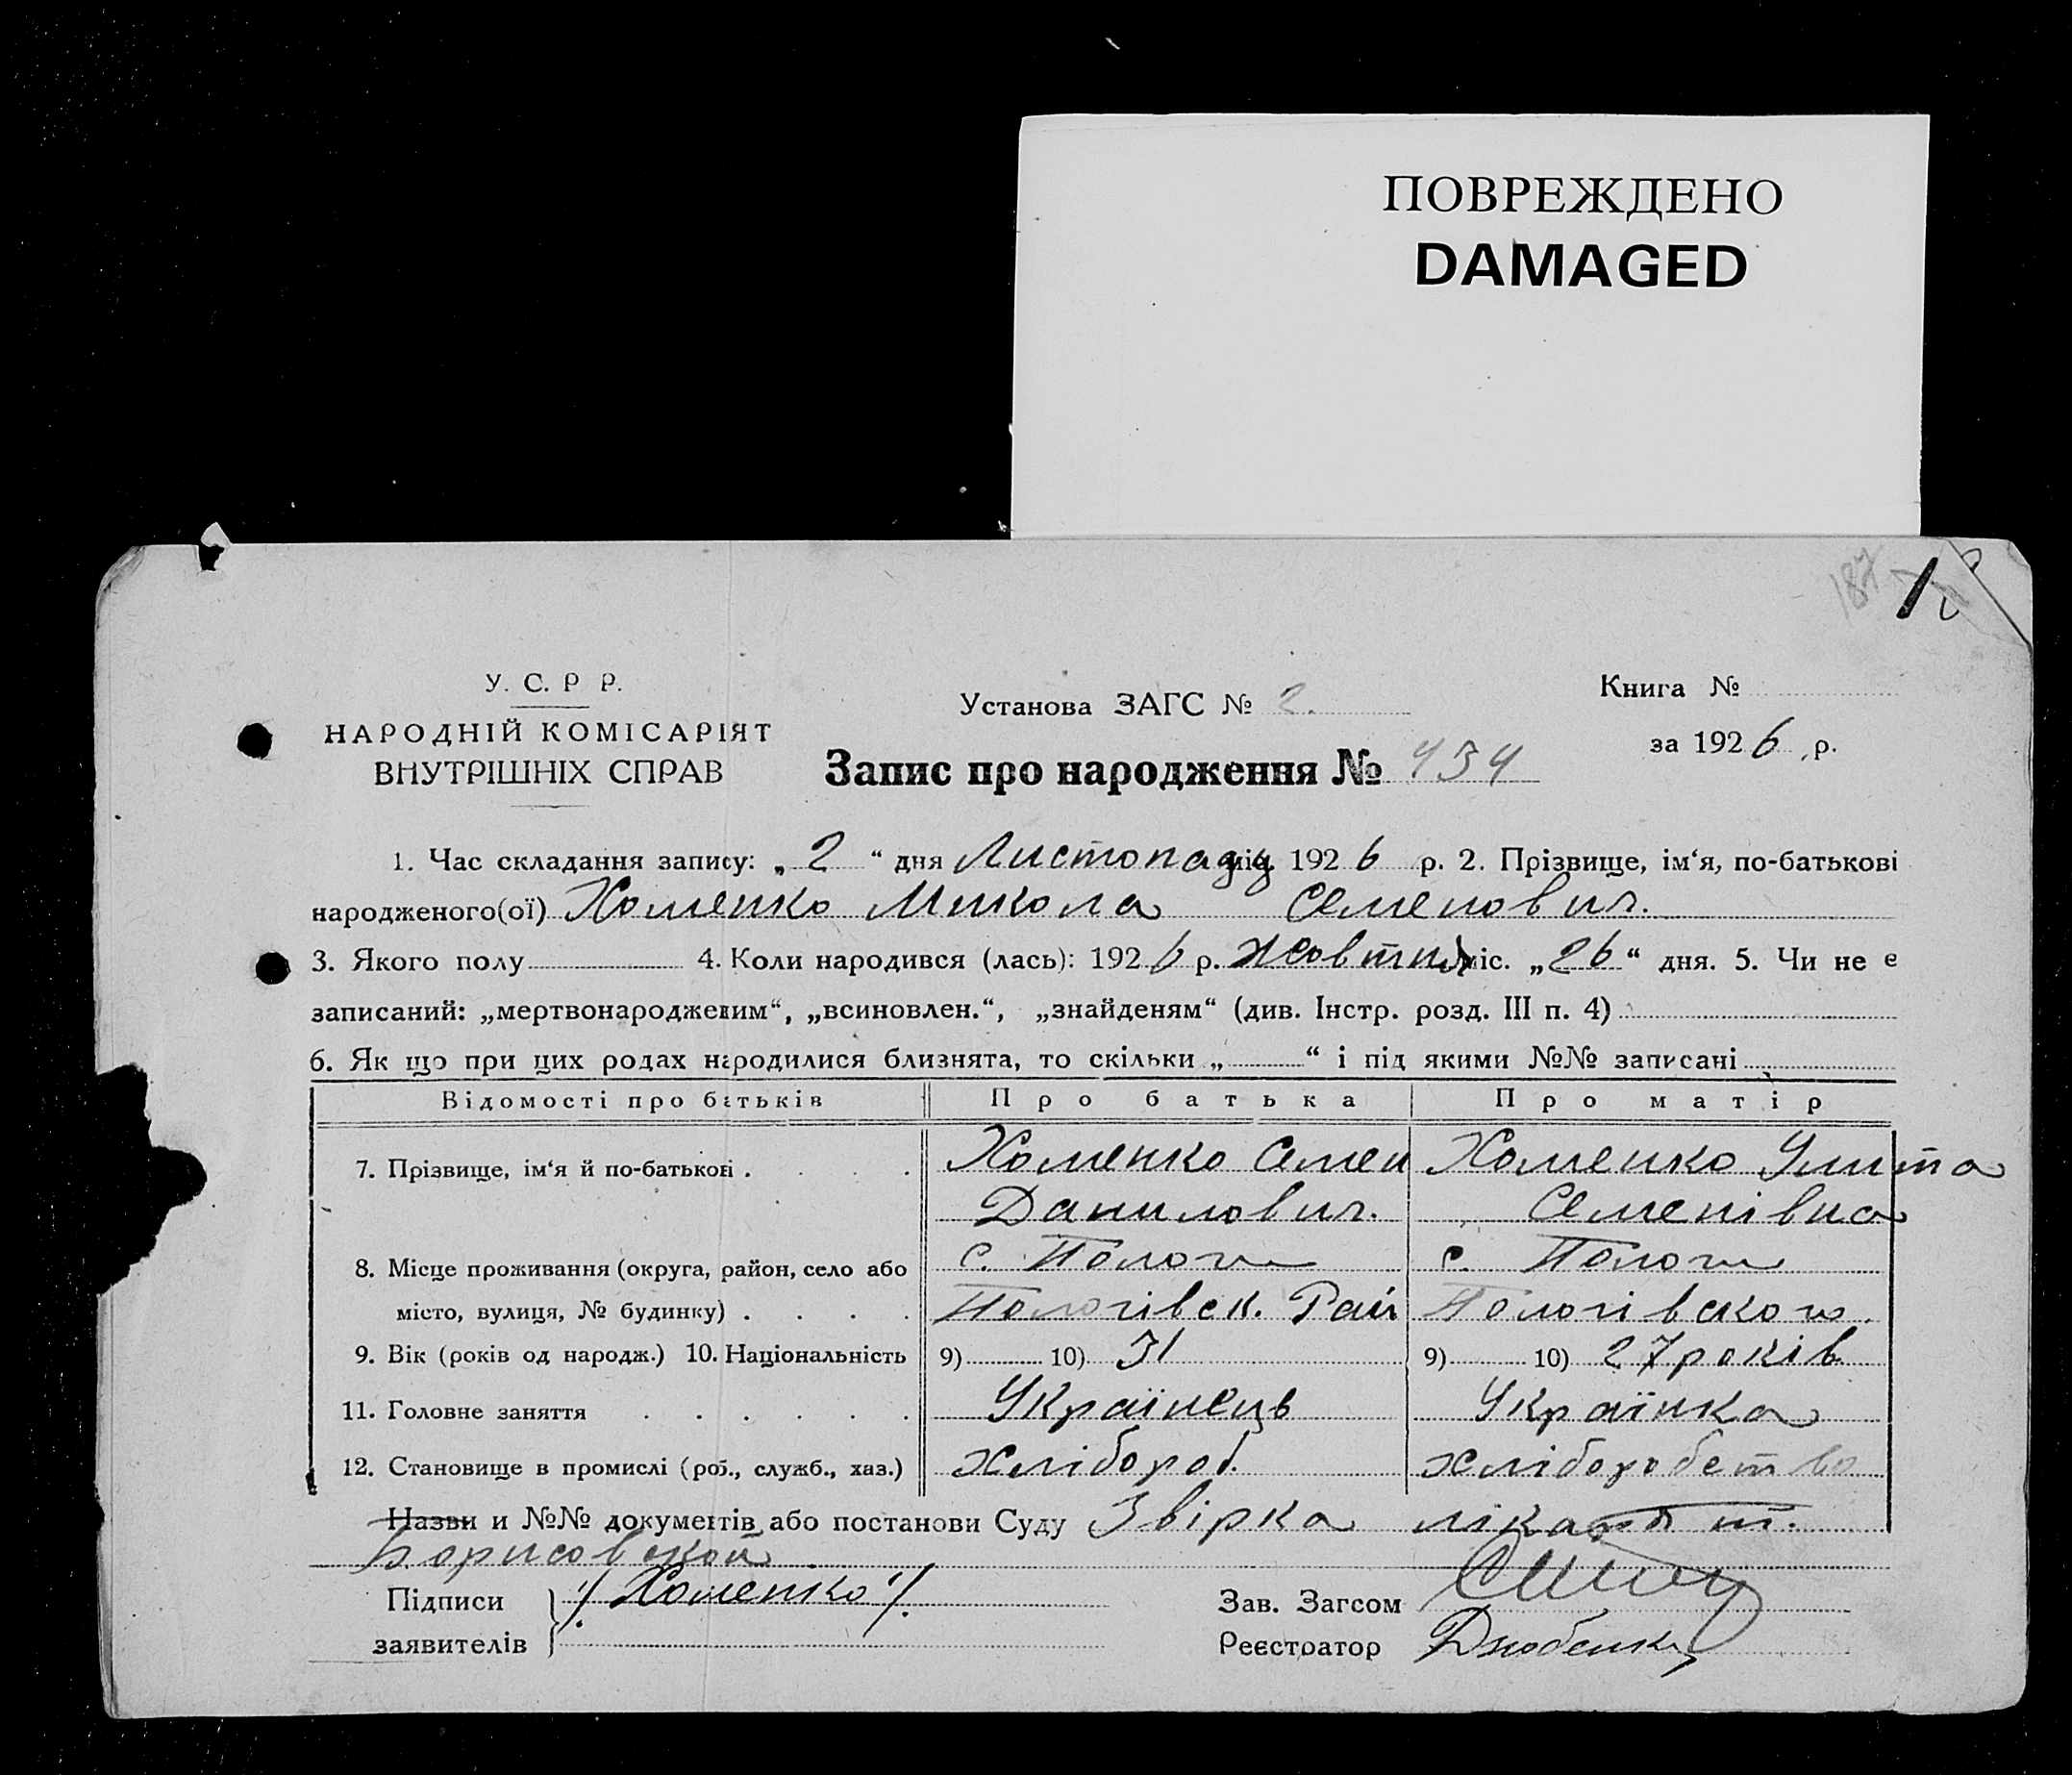 ПОВРЕЖДЕНО
DAMAGED
187
У. С. Р Р.
НАРОДНІЙ КОМІСАРІЯТ
ВНУТРІШНІХ СПРАВ
Установа ЗАГС № 2.
Книга №
за 1926 р.
Запис про народження № 434
1. Час складання запису: „2“ дня Листопаду міс. 1926 р. 2. Прізвище, ім‘я, по-батькові
народженого(ої) Хоменко Микола Семенович.
3. Якого полу 4. Коли народився (лась): 1926 р. жовтня міс. „26“ дня. 5. Чи не є
записаний: „мертвонародженим“, „всиновлен.“, „знайденям“ (див. Інстр. розд. III п. 4)
6. Як що при цих родах народилися близнята, то скільки „ “ і під якими №№ записані
Відомості про батьків Про батька Про матір
7. Прізвище, ім‘я й по-батькові . Хоменко Семен Хоменко Улита
Данилович. Семенівна
8. Місце проживання (округа, район, село або с. Пологи с. Пологи
місто, вулиця, № будинку) . Пологівск. Рай Пологівского.
9. Вік (років од народж.) 10. Національність 9) 10) 31 9) 10) 27 років
11. Головне заняття Українець Українка
12. Становище в промислі (роб., служб., хаз.) хлібороб. хліборобство
Назви и №№ документів або постанови Суду Звірка
Борисовской
Підписи /Хоменко/ Зав. Загсом
заявителів Реєстратор